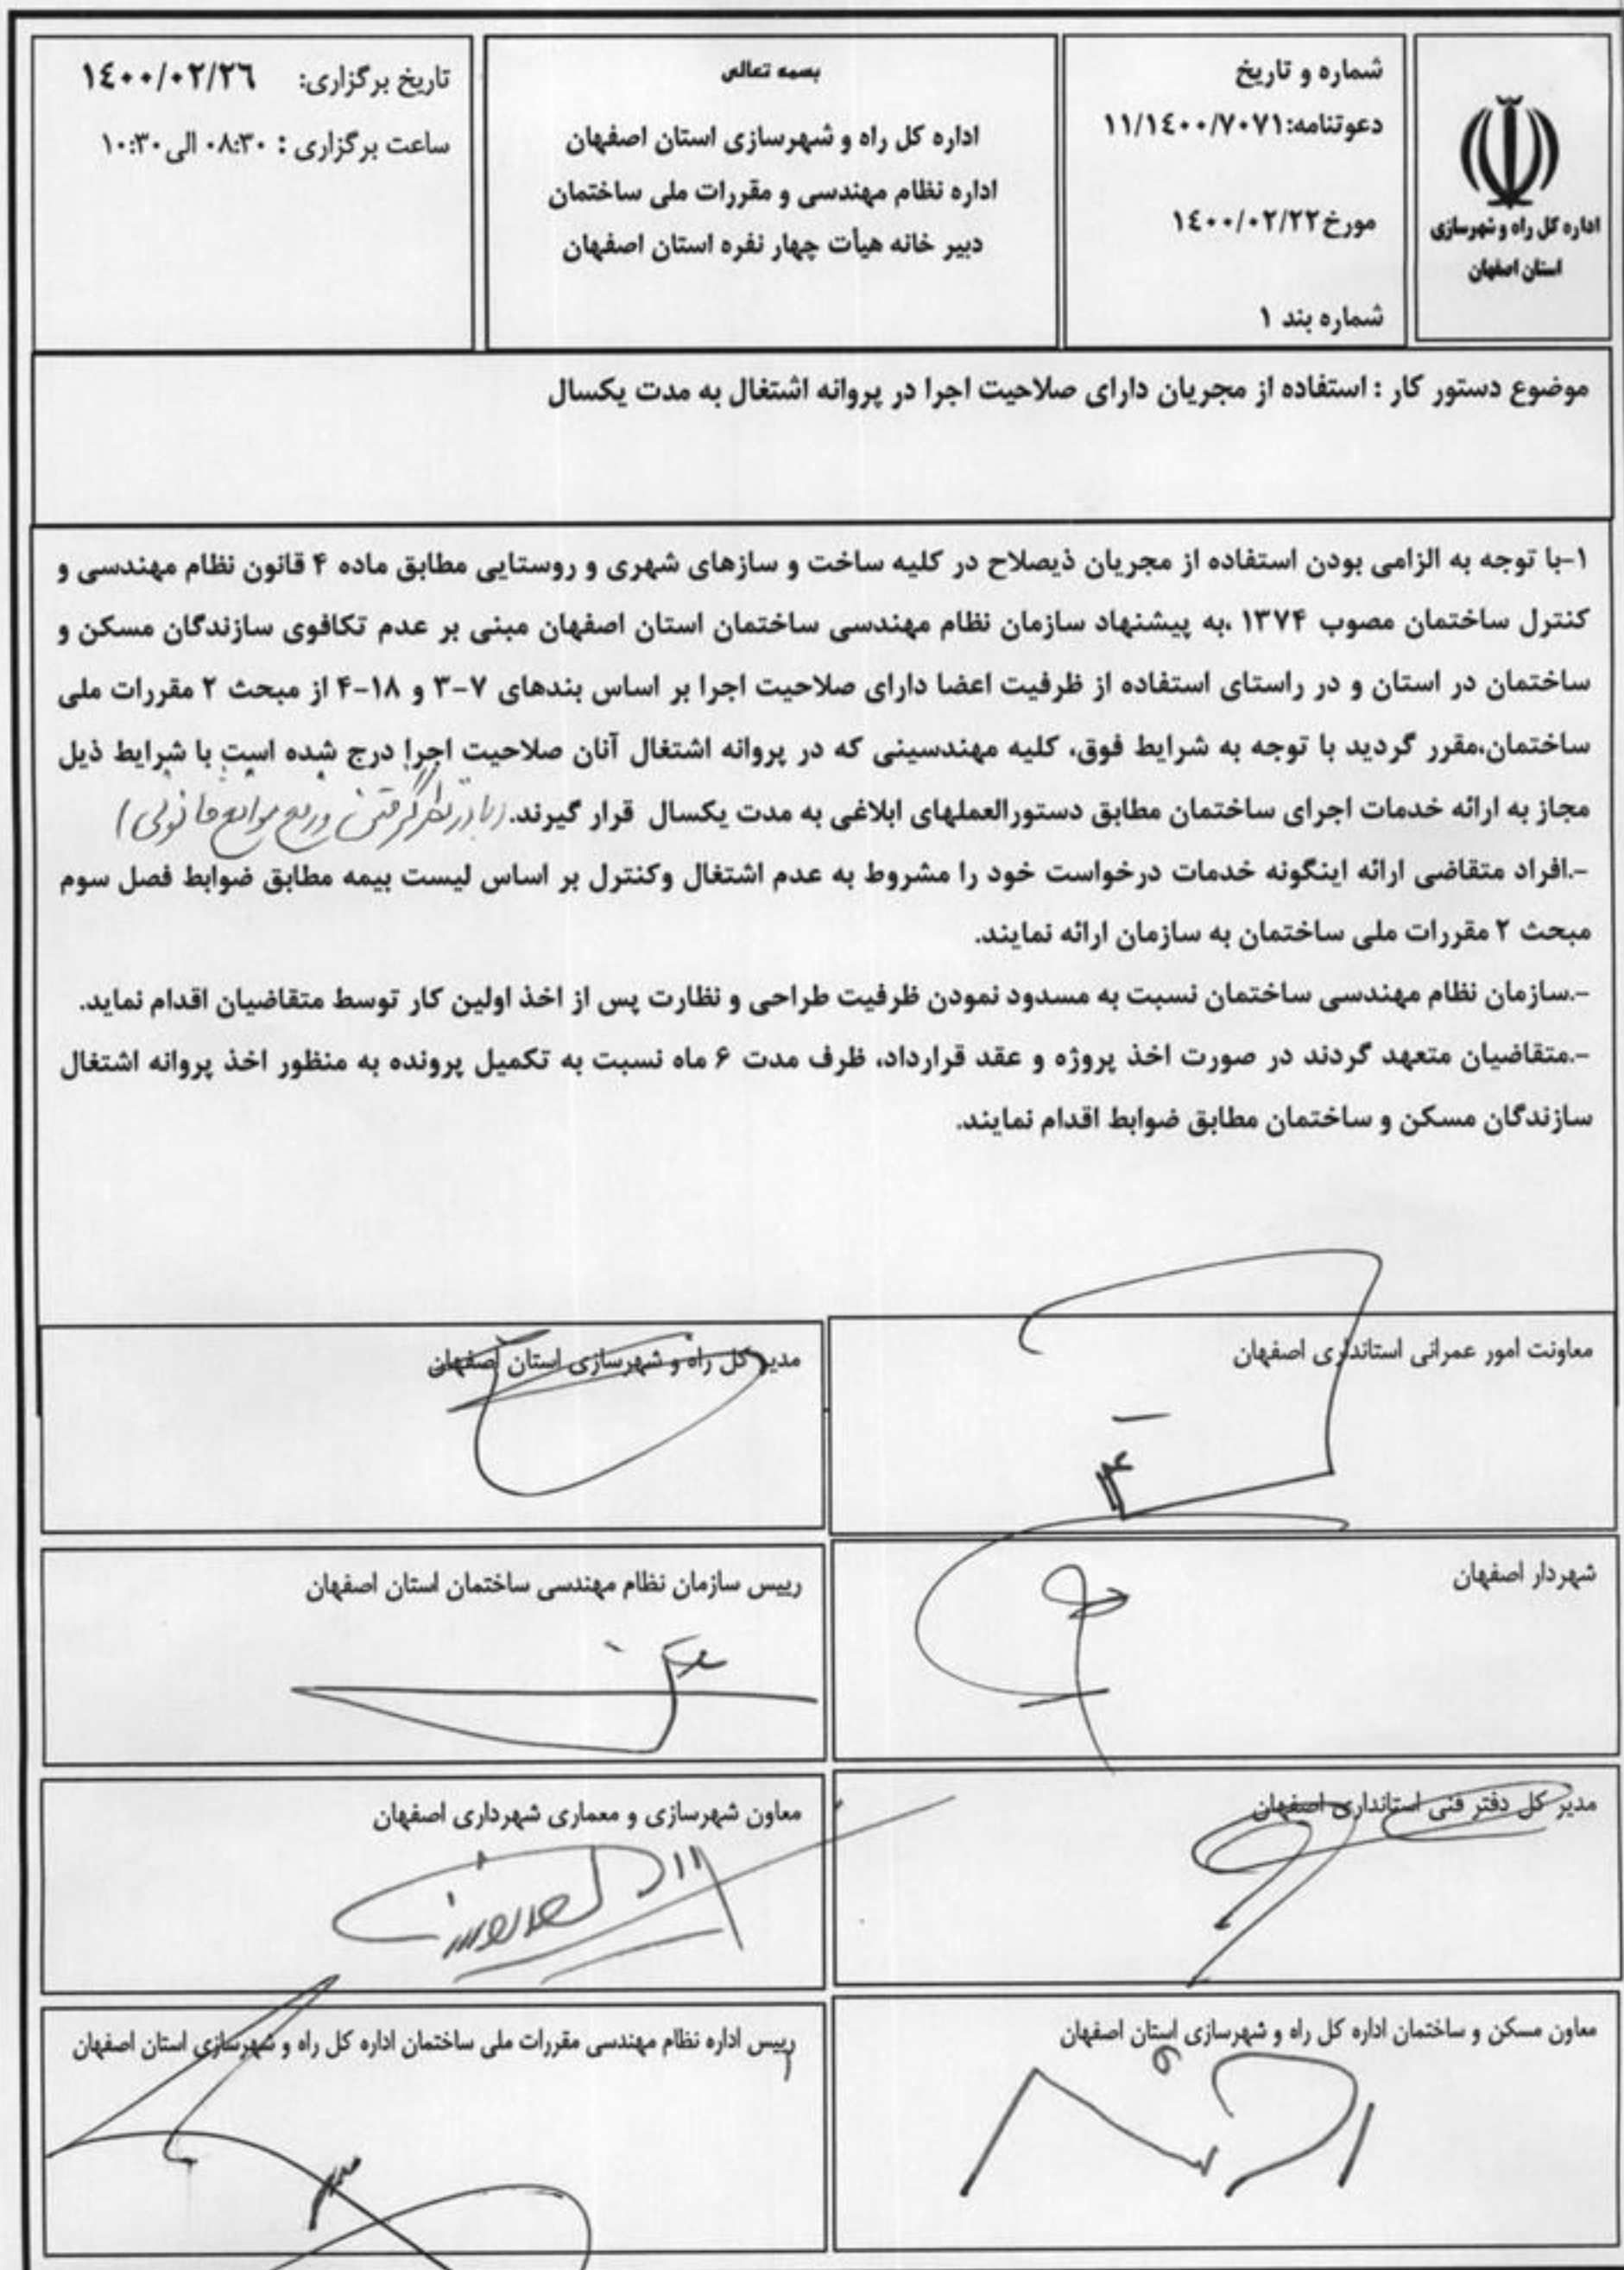 اداره کل راه و شهرسازی
استان اصفهان
شماره و تاریخ
دعوتنامه:۱۱/۱٤۰۰/۷۰۷۱
مورخ۱٤۰۰/۰۲/۲۲
شماره بند ۱
بسمه تعالی
اداره کل راه و شهرسازی استان اصفهان
اداره نظام مهندسی و مقررات ملی ساختمان
دبیر خانه هیأت چهار نفره استان اصفهان
تاریخ برگزاری: ۱٤۰۰/۰۲/۲٦
ساعت برگزاری : ۰۸:۳۰ الی ۱۰:۳۰
موضوع دستور کار : استفاده از مجریان دارای صلاحیت اجرا در پروانه اشتغال به مدت یکسال
۱-با توجه به الزامی بودن استفاده از مجریان ذیصلاح در کلیه ساخت و سازهای شهری و روستایی مطابق ماده ۴ قانون نظام مهندسی و
کنترل ساختمان مصوب ۱۳۷۴ ،به پیشنهاد سازمان نظام مهندسی ساختمان استان اصفهان مبنی بر عدم تکافوی سازندگان مسکن و
ساختمان در استان و در راستای استفاده از ظرفیت اعضا دارای صلاحیت اجرا بر اساس بندهای ۷-۳ و ۱۸-۴ از مبحث ۲ مقررات ملی
ساختمان،مقرر گردید با توجه به شرایط فوق، کلیه مهندسینی که در پروانه اشتغال آنان صلاحیت اجرا درج شده است با شرایط ذیل
مجاز به ارائه خدمات اجرای ساختمان مطابق دستورالعملهای ابلاغی به مدت یکسال قرار گیرند. (با در نظر گرفتن و رفع موانع قانونی)
-.افراد متقاضی ارائه اینگونه خدمات درخواست خود را مشروط به عدم اشتغال وکنترل بر اساس لیست بیمه مطابق ضوابط فصل سوم
مبحث ۲ مقررات ملی ساختمان به سازمان ارائه نمایند.
-.سازمان نظام مهندسی ساختمان نسبت به مسدود نمودن ظرفیت طراحی و نظارت پس از اخذ اولین کار توسط متقاضیان اقدام نماید.
-.متقاضیان متعهد گردند در صورت اخذ پروژه و عقد قرارداد، ظرف مدت ۶ ماه نسبت به تکمیل پرونده به منظور اخذ پروانه اشتغال
سازندگان مسکن و ساختمان مطابق ضوابط اقدام نمایند.
معاونت امور عمرانی استانداری اصفهان
مدیر کل راه و شهرسازی استان اصفهان
شهردار اصفهان
رییس سازمان نظام مهندسی ساختمان استان اصفهان
مدیر کل دفتر فنی استانداری اصفهان
معاون شهرسازی و معماری شهرداری اصفهان
معاون مسکن و ساختمان اداره کل راه و شهرسازی استان اصفهان
رییس اداره نظام مهندسی مقررات ملی ساختمان اداره کل راه و شهرسازی استان اصفهان